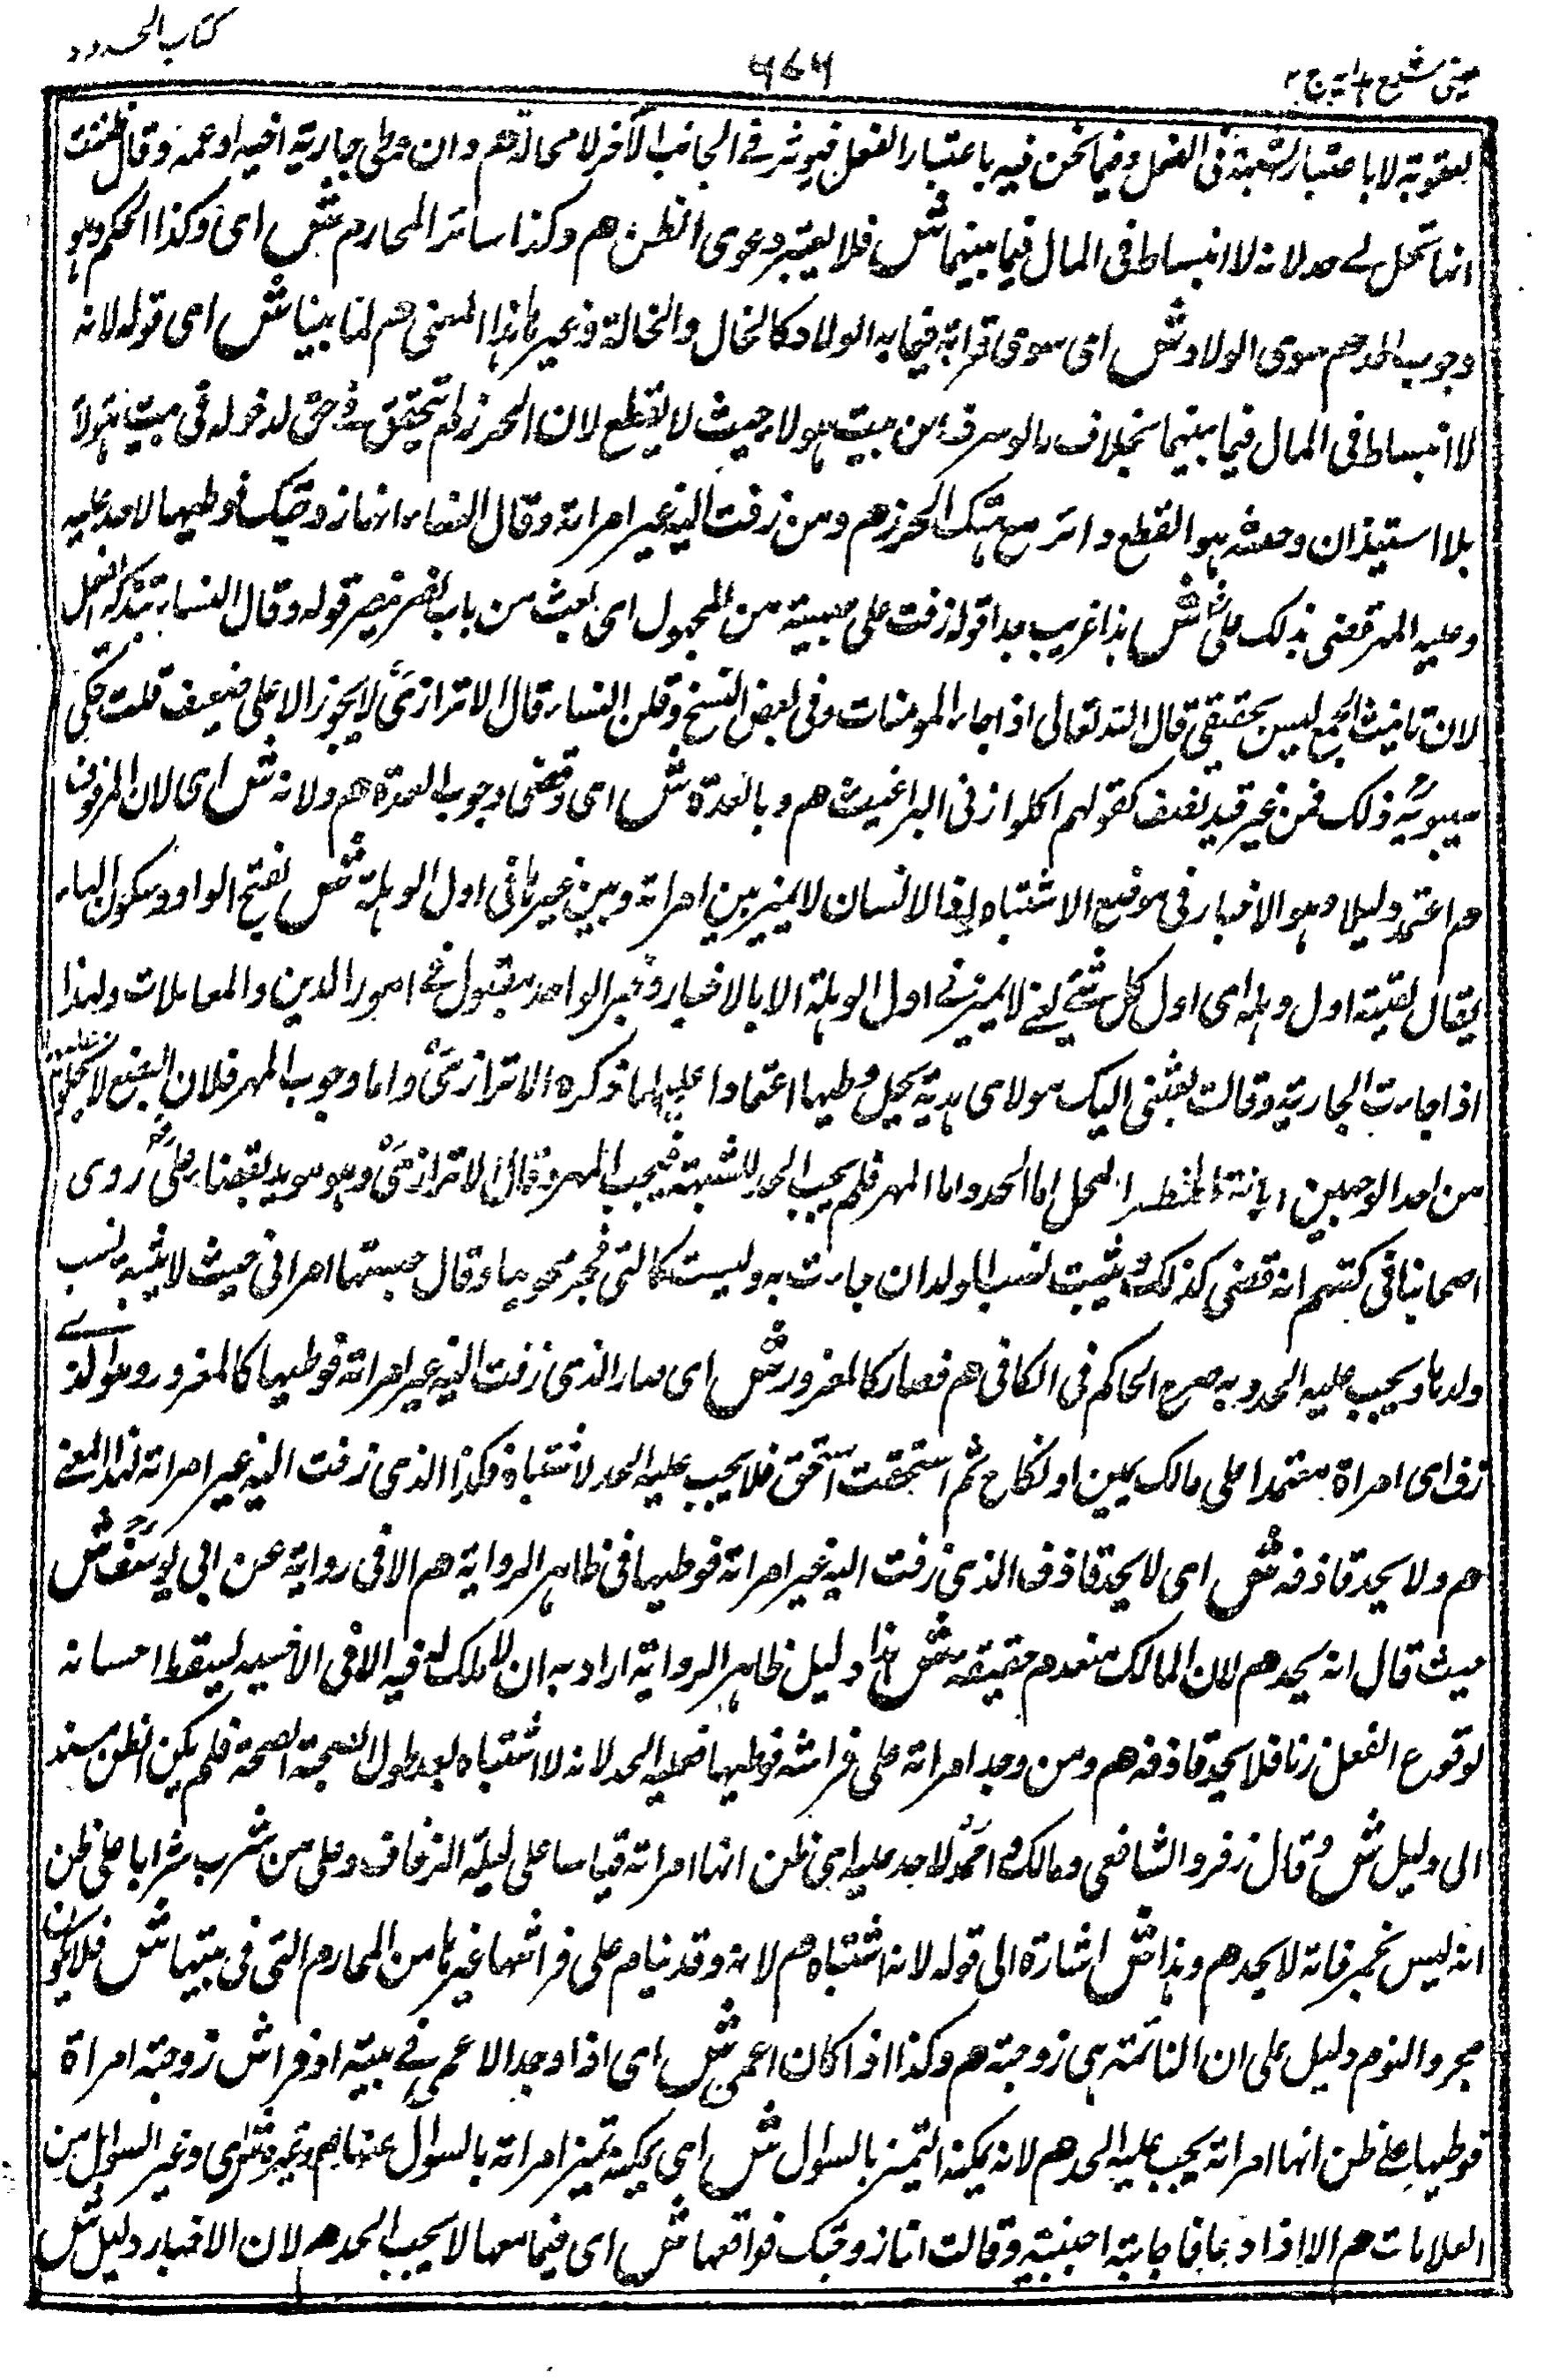 كتاب الحدود
۷۶۶
عينى شرح هدايه ج ۲
لعقوبة لا باعتبار الشبهة فى الفعل وفيما نحن فيه باعتبار الفعل فيوثر فى الجانب الآخر لا محالة هم وان وطى جارية اخيه او عمه وقال ظننت
انها تحل لى حد لانه لا انبساط فى المال فيما بينهما ش فلا يعتبر دعوى الظن هم وكذا سائر المحارم ش اى وكذا الحكم وهو
وجوب الحد هم سوى الولاد ش اى سوى قرابة فيما به الولاد كالخال والخالة وغيرها بهذا المعنى هم لما بينا ش اى قوله لانه
لا انبساط فى المال فيما بينهما بخلاف ما لو سرق من بيت هولاء حيث لا يقطع لان الحرز لم يتحقق فى حق لدخوله فى بيت هولاء
بلا استيذان وحشمة هو القطع دائر مع هتك الحرز هم ومن زفت اليه غير امراته وقال النساء انها زوجتك فوطيها لا حد عليه
وعليه المهر قضى بذلك على ش هذا غريب جدا قوله زفت على صيغة من المجهول اى بعث من باب نصر ينصر قوله وقال النساء بتذكير الفعل
لان تانيث الجمع ليس بحقيقى قال الله تعالى اذا جاء المومنات وفى بعض النسخ وقلن النساء قال الاترازى لا يجوز الا على ضعيف قلت حكى
سيبويه ذلك فمن غير قيد بضعف كقولهم اكلوا زنى البراغيث هم وبالعدة ش اى وقضى وجوب العدة هم ولانه ش اى لان المزفوف
هم اعتمد دليلا وهو الاخبار فى موضع الاشتباه اذ الانسان لا يميز بين امراته وبين غيرها فى اول الوهلة ش بفتح الواو وسكون الهاء
يقال لقيته اول وهلة اى اول كل شئ يعنى لا يميز فى اول الوهلة الا بالاخبار وخبر الواحد مقبول فى امور الدين والمعاملات ولهذا
اذا جاءت الجارية وقالت بعثنى اليك مولاى هدية يحل وطيها اعتمادا عليه لما ذكره الاترازى واما وجوب المهر فلان البضع لا يخلو
من احد الوجهين ابانة لخطر المحل اما الحد واما المهر فلم يجب الحد للشبهة فيجب المهر وقال الاترازى وهو مويد بقضاء على روى
اصحابنا فى كتبهم انه قضى كذلك ويثبت نسب الولد ان جاءت به وليست كالتى فجر بها وقال حسبتها امراتى حيث لا يثبت نسب
ولدها ويجب عليه الحد وبه صرح الحاكم فى الكافى هم فصار كالمغرور ش اى صار الذى زفت اليه غير امراته فوطيها كالمغرور وهو الذى
زف اى امراة معتمدا على مالك يمين او نكاح ثم استحقت فلا يجب عليه الحد لاشتباه فكذا الذى زفت اليه غير امراته لهذا المعنى
هم ولا يحد قاذفه ش اى لا يحد قاذف الذى زفت اليه غير امراته فوطيها فى ظاهر الرواية هم الا فى رواية عن ابى يوسف ش
حيث قال انه يحد هم لان المالك منعدم حقيقة ش هذا دليل ظاهر الرواية اراد به ان لا ملك له فيه الا فى الاخير ليسقط احصانه
لوقوع الفعل زنا فلا يحد قاذفه هم ومن وجد امراة على فراشه فوطيها فعليه الحد لانه لا اشتباه بعد طول الصحبة فلم يكن الظن مستند
الى دليل ش وقال زفر والشافعى ومالك واحمد لا حد عليه اى ظن انها امراته قياسا على ليلة الزفاف وعلى من شرب شرابا على ظن
انه ليس بخمر فانه لا يحد هم وهذا ش اشارة الى قوله لانه اشتباه هم لانه وقد ينام على فراشها غيرها من المحارم التى فى بيتها ش فلا يكون
مجرد النوم دليل على ان النائمة هى زوجته هم وكذا اذا كان اعمى ش اى اذا وجد الاعمى فى بيته او فراش زوجته امراة
فوطيها على ظن انها امراته يجب عليه الحد هم لانه يمكنه التميز بالسوال ش اى يمكنه تميز امراته بالسوال عنها هم وغيره ش اى وغير السوال من
العلامات هم الا اذا دعاها فاجابته اجنبية وقالت انا زوجتك فواقعها ش اى فيجامعها لا يجب الحد هم لان الاخبار دليل ش